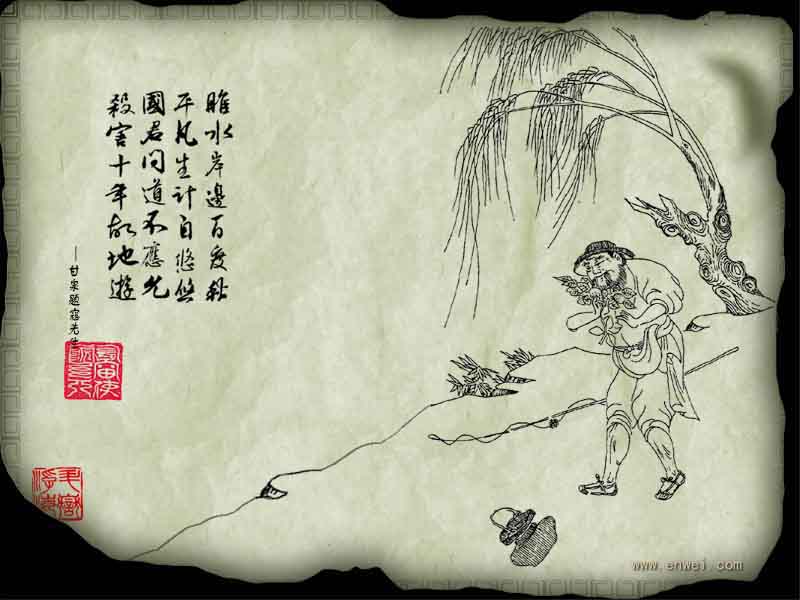 睢水岸邊百度秋
平凡生計自悠悠
國君問道不應允
殺害十年故地遊
—甘題寇先生
www.enwei.com